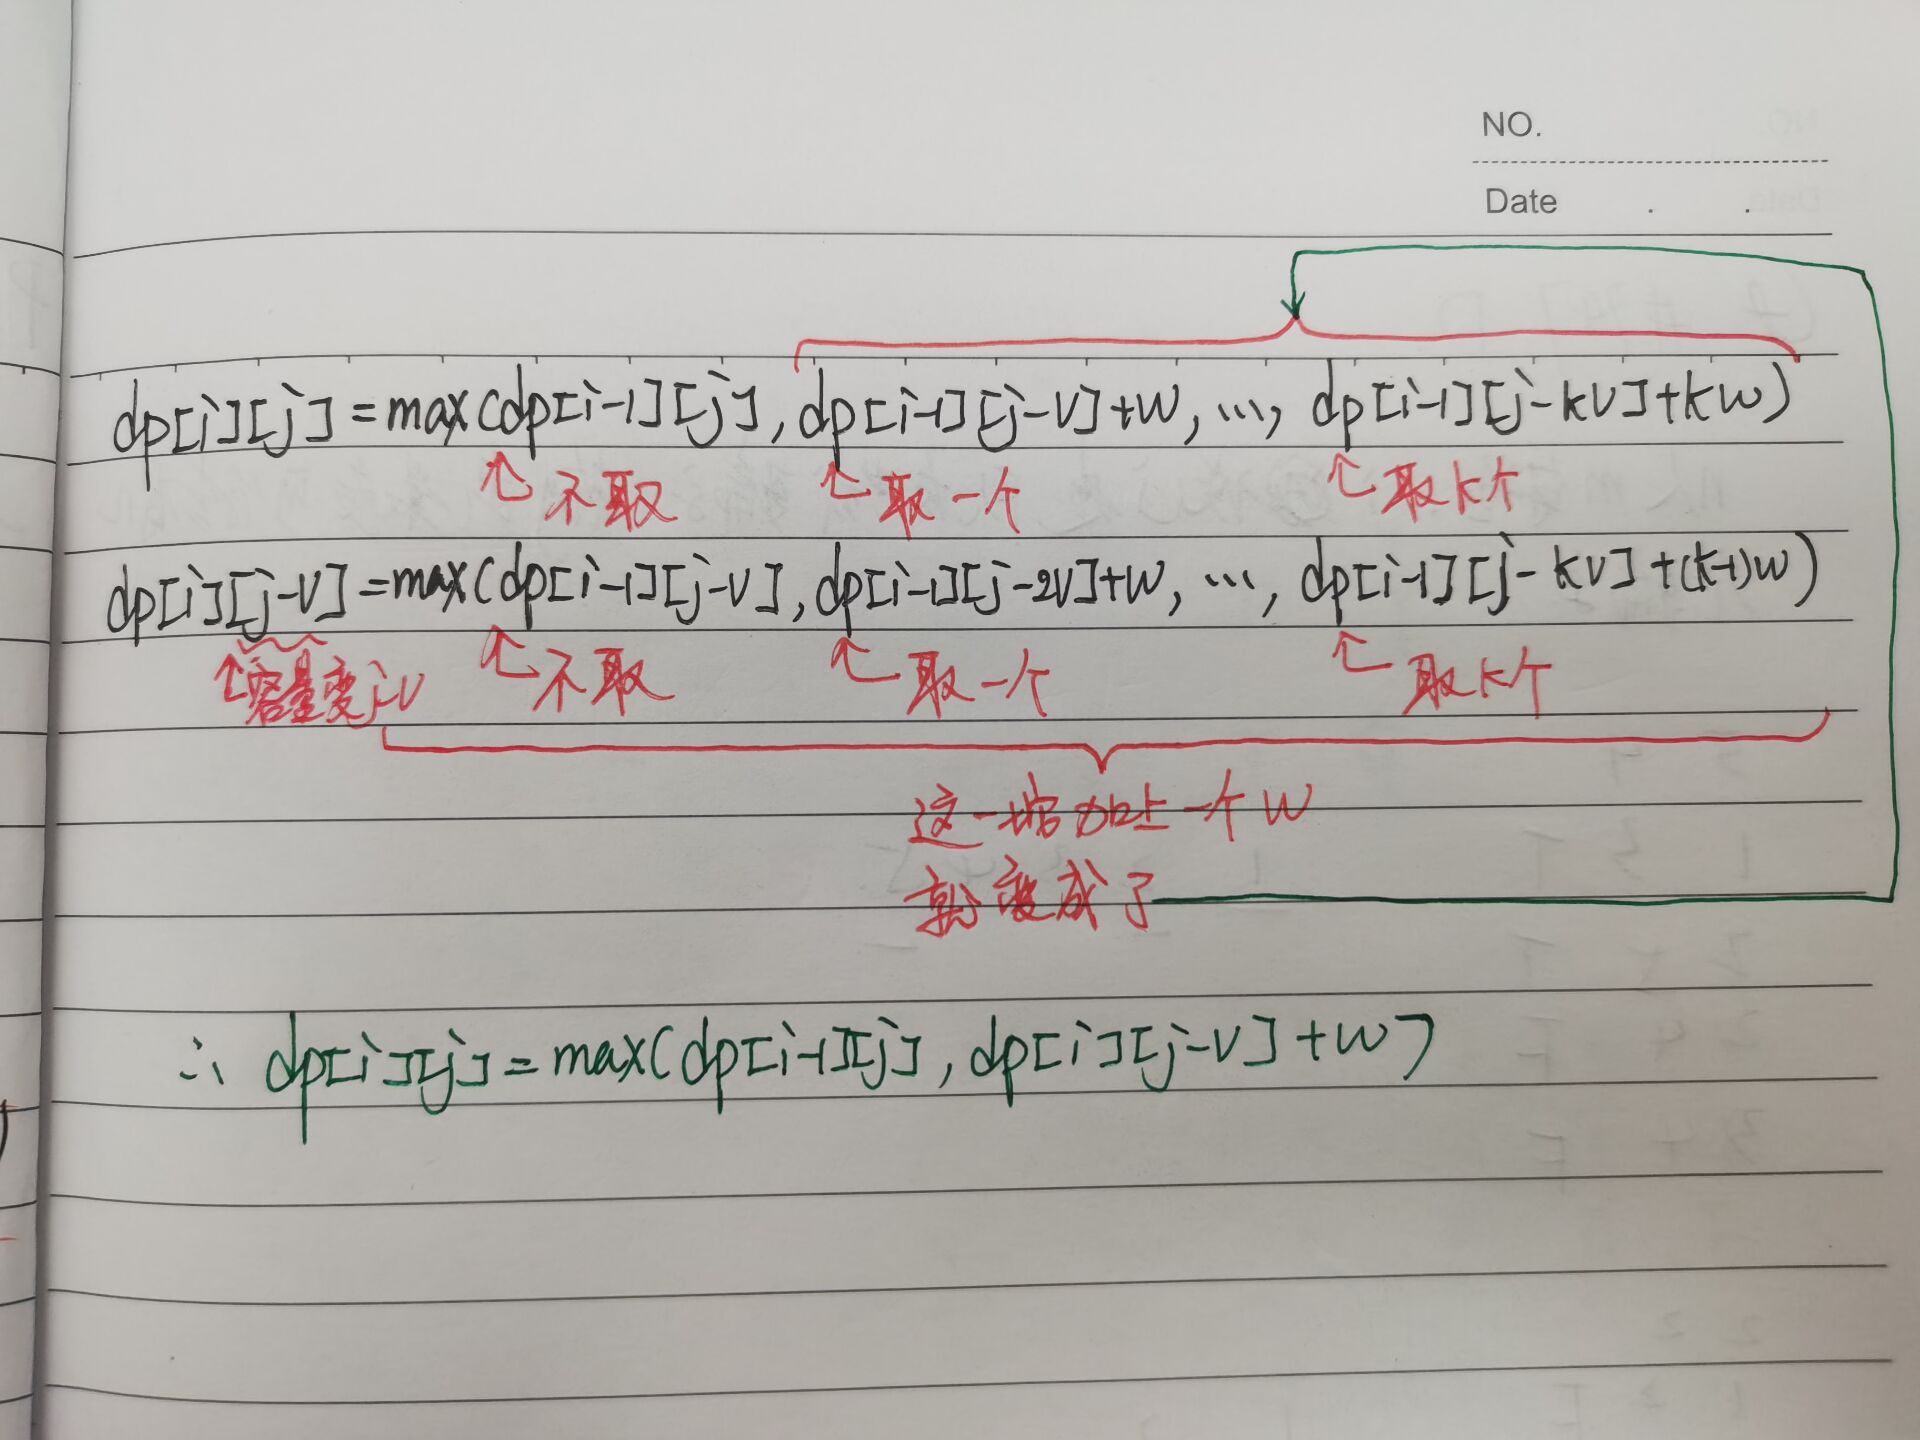 NO.
Date . .
dp[i][j]=max(dp[i-1][j],dp[i-1][j-V]+W,...,dp[i-1][j-kV]+kW)
不取 取一个 取k个
dp[i][j-V]=max(dp[i-1][j-V],dp[i-1][j-2V]+W,...,dp[i-1][j-kV]+(k-1)W)
容量变j-V 不取 取一个 取k个
这一堆加上一个W
就变成了
∴ dp[i][j]=max(dp[i-1][j],dp[i][j-V]+W)